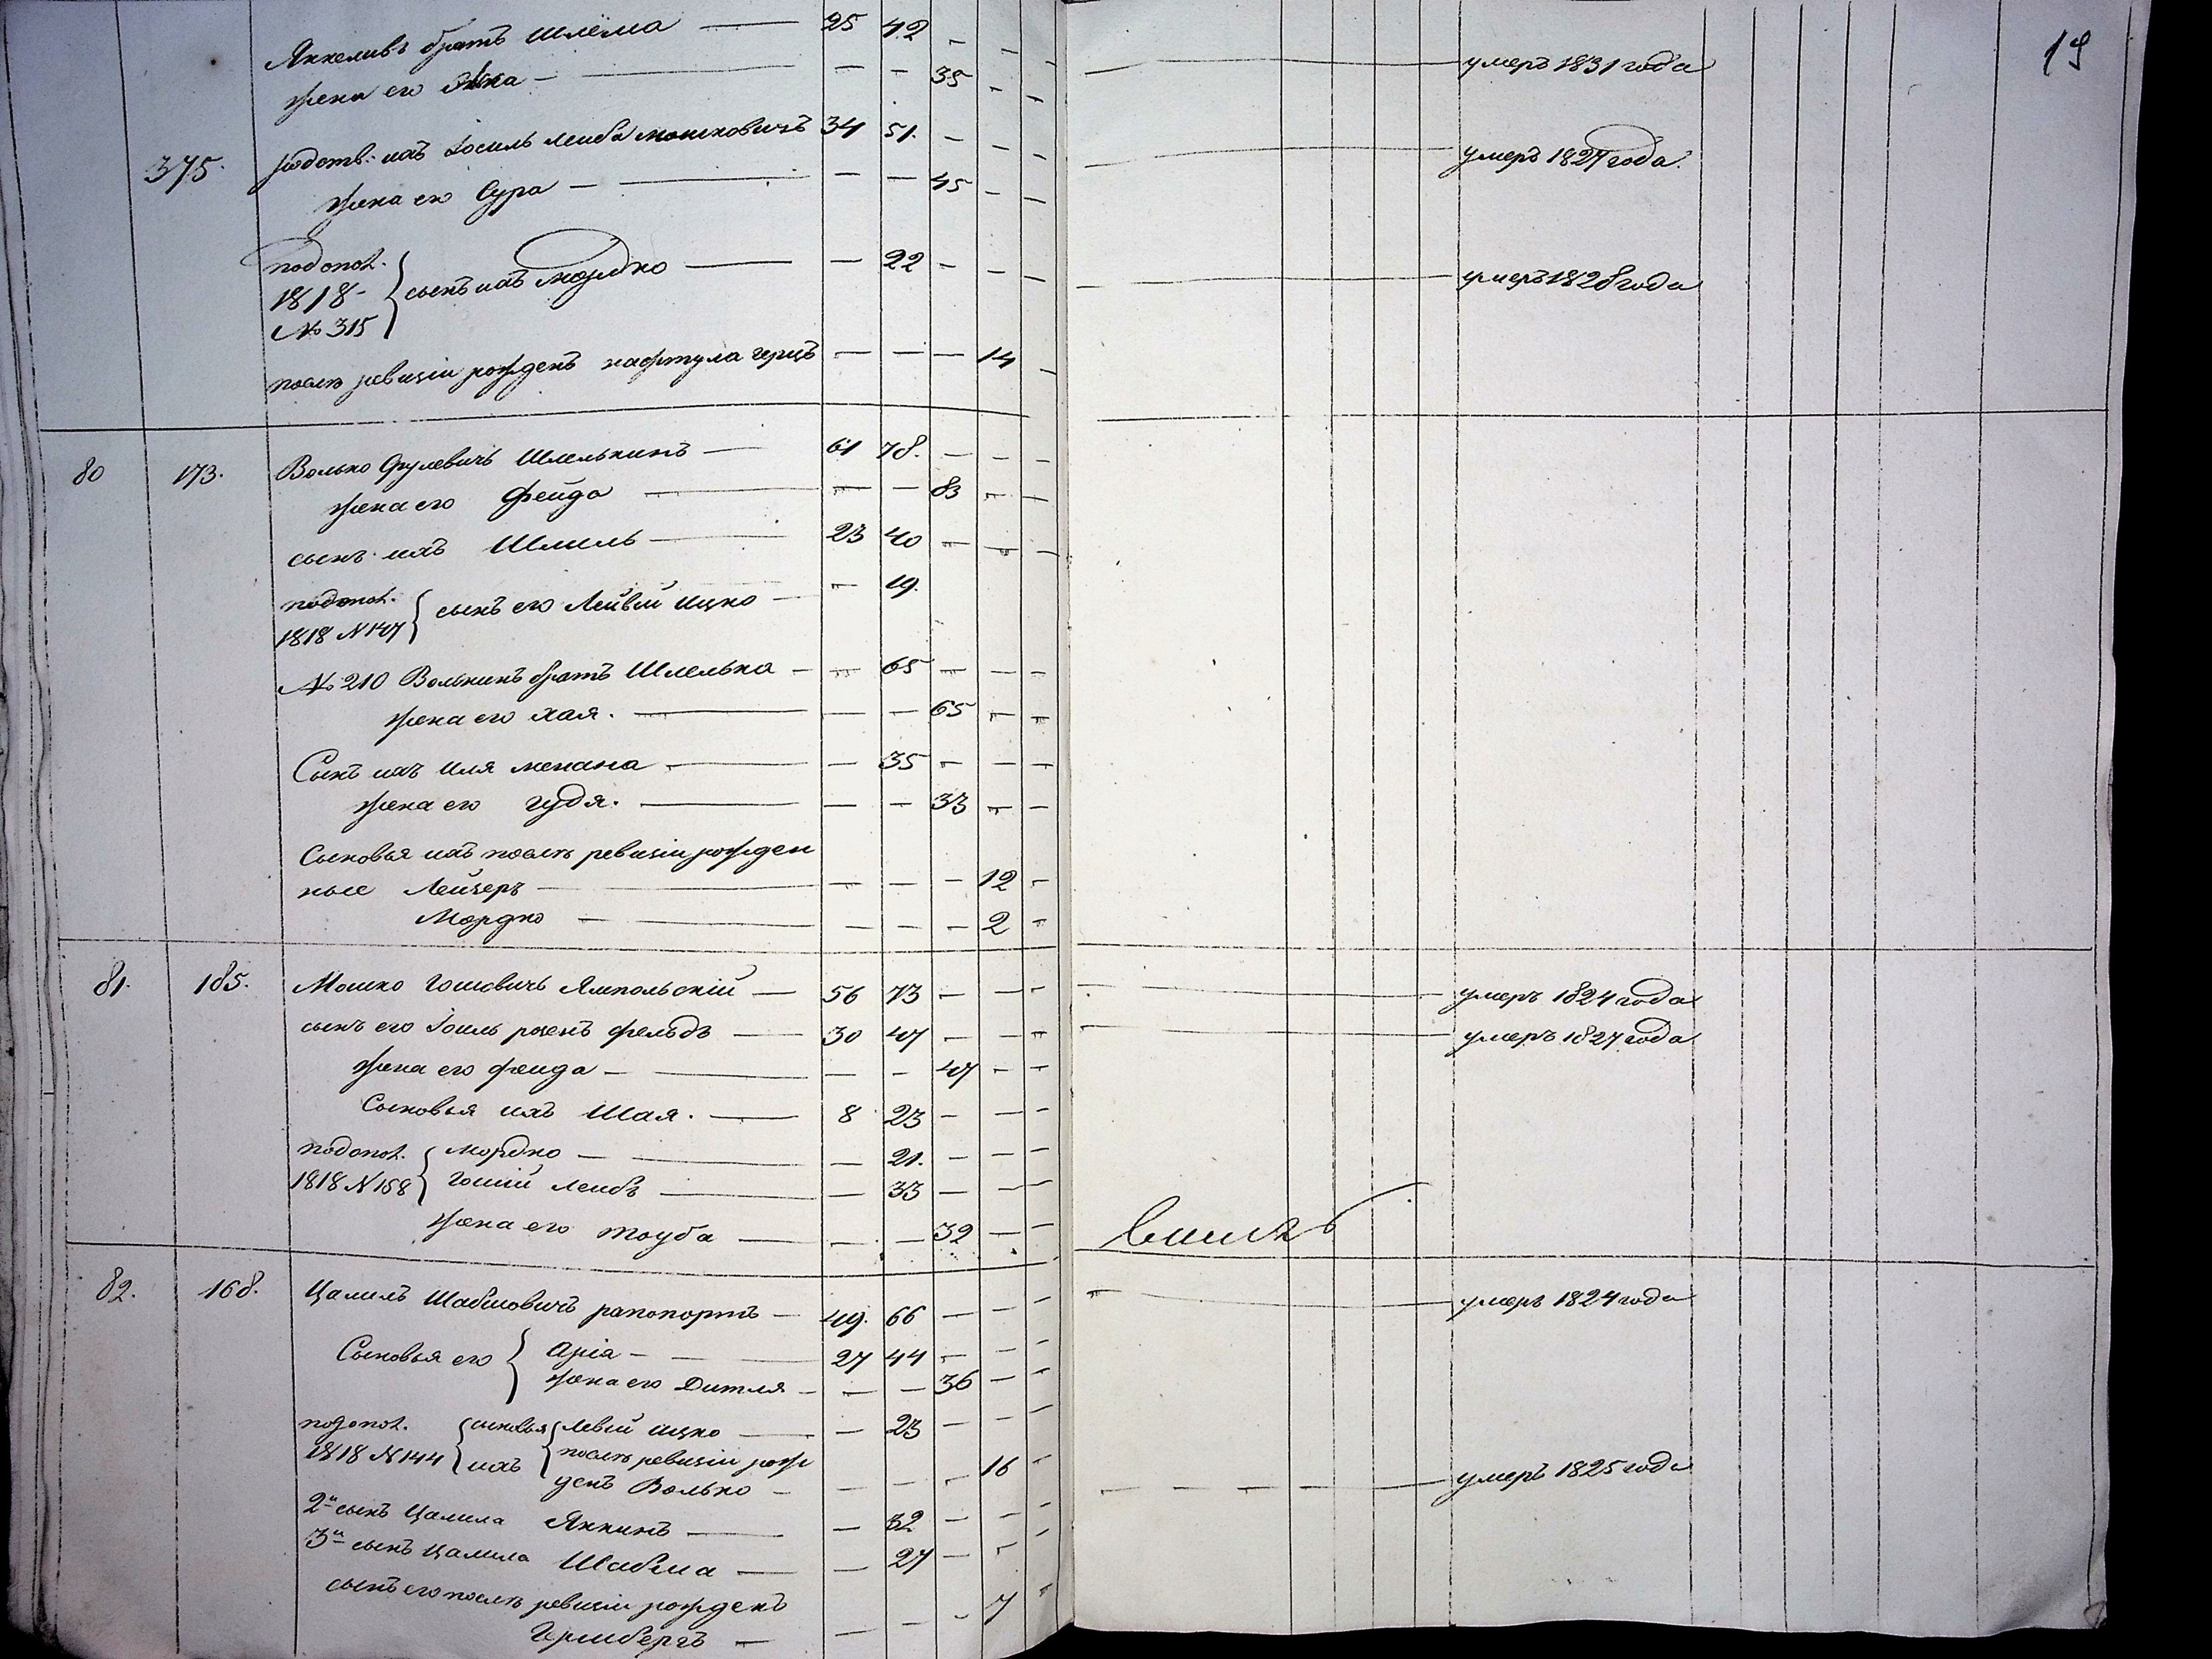 19
Янкеливъ братъ Шлёма — 25 42 — — — умеръ 1831 года
жена его — — — 35 — —
375. родств: ихъ Іосиль Леиба Мошковичъ 34 51. — — — умеръ 1827 года.
жена его Сура — — — 45 — —
по допол.
1818 -
№ 315 { сынъ ихъ Мордко — — 22 — — — умеръ 1828 года
послѣ ревизіи рожденъ Нафтула Герцъ — — — 14 —
80 173. Волько Срулевичъ Шмелькинъ — 61 78. — — —
жена его Фейга — — — 83 — —
сынъ ихъ Шмиль — 23 40 — — —
по допол.
1818 № 147 { сынъ его Лейвій Ицко — — 19.
№ 210 Волькинъ братъ Шмелька — — 65 — — —
жена его Хая. — — — 65 — —
Сынъ ихъ Иля Менаха — — 35 — — —
жена его Гудя. — — — 33 — —
Сыновья ихъ послѣ ревизіи рожден
ные Лейзеръ — — — — 12 —
Мордко — — — — 2 —
81. 185. Мошко Гошовичъ Ямпольскій — 56 73 — — — умеръ 1824 года
сынъ его Іоиль розенъ фельдъ — 30 47 — — — умеръ 1827 года
жена его Фейга — — — 47 — —
Сыновья ихъ Шая. — 8 23 — — —
по допол.
1818 № 158 { Мордко — — 21. — — —
Гошій Леибъ — — 33 — — —
жена его Тоуба — — — 32 — —
82. 168. Цалилъ Шабшовичъ рапопортъ — 49. 66 — — — умеръ 1824 года
Сыновья его { Аріа — 27 44 — — —
жена его Дитля — — — 36 — —
по допол.
1818 № 144 { сыновья ихъ { Левій Ицко — — 23 — — —
послѣ ревизіи рож
денъ Волько — — — — 16 — умеръ 1825 года
2й сынъ Цалила Янкинъ — — 32 — — —
3й сынъ Цалила Шабша — — 27 — — —
сынъ его послѣ ревизіи рожденъ — — — 7 —
Гершбергъ —